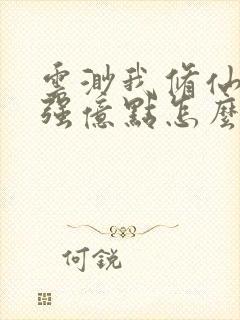 雲渺我修仙
強億點怎麼
何銳